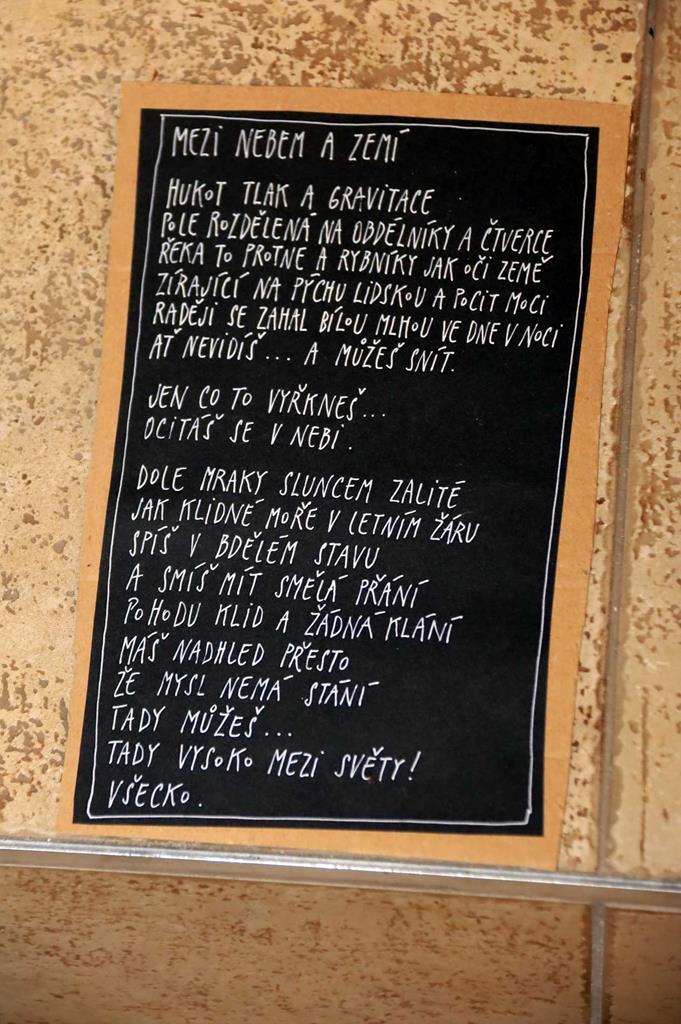 MEZI NEBEM A ZEMÍ
HUKOT TLAK A GRAVITACE
POLE ROZDĚLENÁ NA OBDÉLNÍKY A ČTVERCE
ŘEKA TO PROTNE A RYBNÍKY JAK OČI ZEMĚ
ZÍRAJÍCÍ NA PÝCHU LIDSKOU A POCIT MOCI
RADĚJI SE ZAHAL BÍLOU MLHOU VE DNE V NOCI
AŤ NEVIDÍŠ... A MŮŽEŠ SNÍT.
JEN CO TO VYŘKNEŠ...
OCITÁŠ SE V NEBI.
DOLE MRAKY SLUNCEM ZALITÉ
JAK KLIDNÉ MOŘE V LETNÍM ŽÁRU
SPÍŠ V BDĚLÉM STAVU
A SMÍŠ MÍT SMĚLÁ PŘÁNÍ
POHODU KLID A ŽÁDNÁ KLÁNÍ
MÁŠ NADHLED PŘESTO
ŽE MYSL NEMÁ STÁNÍ
TADY MŮŽEŠ...
TADY VYSOKO MEZI SVĚTY!
VŠECKO.